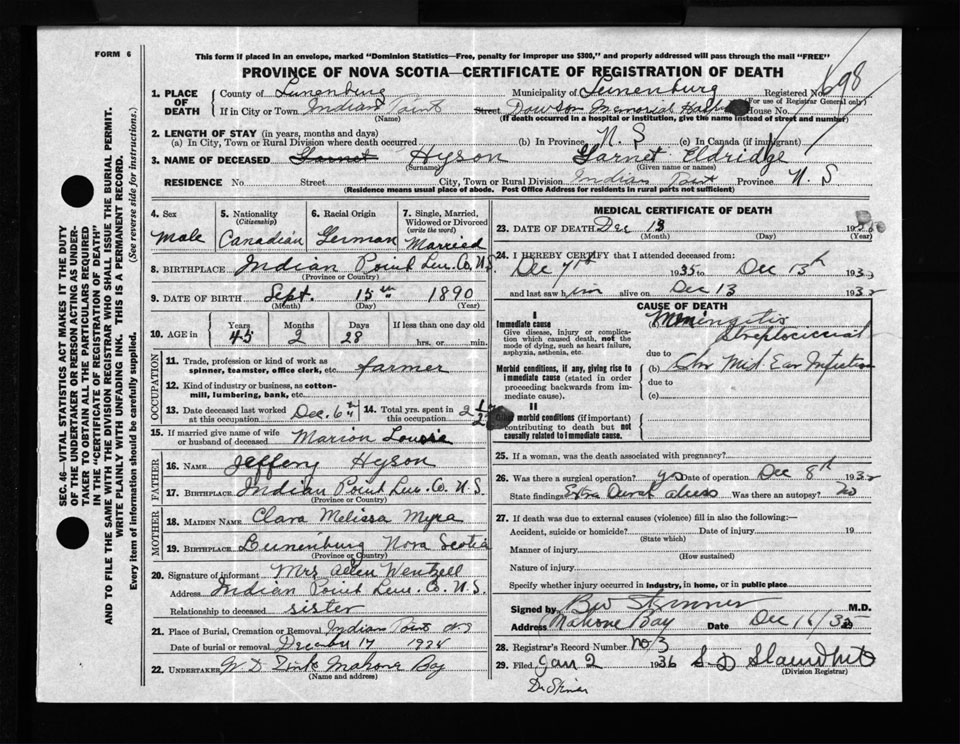 FORM 6
This form if placed in an envelope, marked "Dominion Statistics—Free, penalty for improper use $300," and properly addressed will pass through the mail "FREE"
PROVINCE OF NOVA SCOTIA—CERTIFICATE OF REGISTRATION OF DEATH
1. PLACE OF DEATH
County of Lunenburg Municipality of Lunenburg Registered No. 698
(For use of Registrar General only)
If in City or Town Indian Point Street Dawson Memorial House No.
(Name) (If death occurred in a hospital or institution, give the name instead of street and number)
2. LENGTH OF STAY (in years, months and days)
(a) In City, Town or Rural Division where death occurred (b) In Province N. S (c) In Canada (if immigrant)
3. NAME OF DECEASED Garnet Hyson Garnet Eldridge
(Surname) (Given name or names)
RESIDENCE No. Street City, Town or Rural Division Indian Point Province N. S
(Residence means usual place of abode. Post Office Address for residents in rural parts not sufficient)
4. Sex Male
5. Nationality (Citizenship) Canadian
6. Racial Origin German
7. Single, Married, Widowed or Divorced (write the word) Married
8. BIRTHPLACE Indian Point Lun. Co. N.S.
(Province or Country)
9. DATE OF BIRTH Sept. 15th 1890
(Month) (Day) (Year)
10. AGE in Years 45 Months 2 Days 28 If less than one day old hrs. or min.
OCCUPATION
11. Trade, profession or kind of work as spinner, teamster, office clerk, etc. farmer
12. Kind of industry or business, as cotton-mill, lumbering, bank, etc.
13. Date deceased last worked at this occupation Dec. 6th
14. Total yrs. spent in this occupation
15. If married give name of wife or husband of deceased Marion Louise
FATHER
16. NAME Jeffery Hyson
17. BIRTHPLACE Indian Point Lun. Co. N.S.
(Province or Country)
MOTHER
18. MAIDEN NAME Clara Melissa Myra
19. BIRTHPLACE Lunenburg Nova Scotia
(Province or Country)
20. Signature of informant Mrs Allen Wentzell
Address Indian Point Lun. Co. N.S.
Relationship to deceased sister
21. Place of Burial, Cremation or Removal Indian Point
Date of burial or removal December 17 1935
22. UNDERTAKER Mahone Bay
(Name and address)
MEDICAL CERTIFICATE OF DEATH
23. DATE OF DEATH Dec 13
(Month) (Day) (Year)
24. I HEREBY CERTIFY that I attended deceased from:
Dec 7th 1935 to Dec 13th 193
and last saw him alive on Dec 13 193
CAUSE OF DEATH
I
Immediate cause
Give disease, injury or complication which caused death, not the mode of dying, such as heart failure, asphyxia, asthenia, etc.
Meningitis
Streptococcal
due to
Morbid conditions, if any, giving rise to immediate cause (stated in order proceeding backwards from immediate cause).
(b) Mid Ear Infection
due to
(c)
II
Other morbid conditions (if important) contributing to death but not causally related to immediate cause.
25. If a woman, was the death associated with pregnancy?
26. Was there a surgical operation? yes Date of operation Dec 8th 193
State findings Extra Dural abscess Was there an autopsy? No
27. If death was due to external causes (violence) fill in also the following:—
Accident, suicide or homicide? Date of injury 19
(State which)
Manner of injury
(How sustained)
Nature of injury
Specify whether injury occurred in industry, in home, or in public place
Signed by Skinner M.D.
Address Mahone Bay Date Dec 16/35
28. Registrar's Record Number No 3
29. Filed Jan 2 1936
(Division Registrar)
Dr Skinner
SEC. 46—VITAL STATISTICS ACT MAKES IT THE DUTY
OF THE UNDERTAKER OR PERSON ACTING AS UNDER-
TAKER TO OBTAIN ALL THE PARTICULARS REQUIRED
IN THE "CERTIFICATE OF REGISTRATION OF DEATH"
AND TO FILE THE SAME WITH THE DIVISION REGISTRAR WHO SHALL ISSUE THE BURIAL PERMIT.
WRITE PLAINLY WITH UNFADING INK. THIS IS A PERMANENT RECORD.
Every item of information should be carefully supplied. (See reverse side for instructions.)